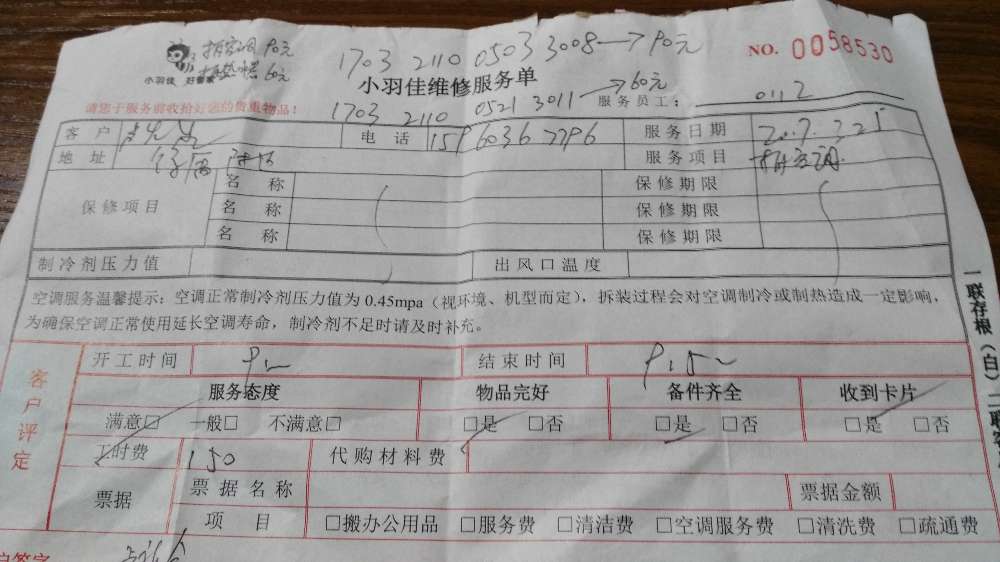 拆空调 90元
1703 2110 0503 3008→90元
NO. 0058530
小羽佳 好管家
60元
小羽佳维修服务单
→60元
请您于服务前收拾好您的贵重物品!
1703 2110 0521 3011
服务员工: 0112
客户 电话 159 6036 2796 服务日期
地址 服务项目 拆空调
保修项目 名称 保修期限
名称 保修期限
名称 保修期限
制冷剂压力值 出风口温度
空调服务温馨提示:空调正常制冷剂压力值为 0.45mpa(视环境、机型而定),拆装过程会对空调制冷或制热造成一定影响,
为确保空调正常使用延长空调寿命,制冷剂不足时请及时补充。
一联存根(白)二联客
客户评定
开工时间 结束时间
服务态度 物品完好 备件齐全 收到卡片
满意□ 一般□ 不满意□ □是 □否 □是 □否 □是 □否
工时费 150 代购材料费
票据 票据名称 票据金额
项目 □搬办公用品 □服务费 □清洁费 □空调服务费 □清洗费 □疏通费